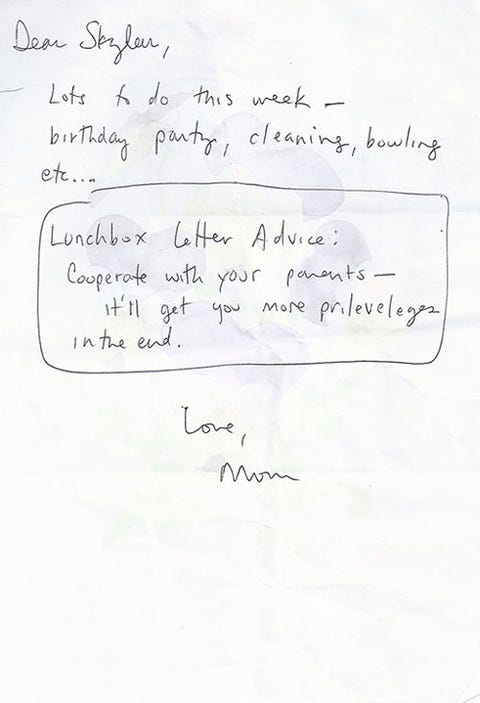 Dear Skyler,
Lots to do this week –
birthday party, cleaning, bowling
etc...
Lunchbox Letter Advice:
Cooperate with your parents –
it'll get you more prileveleges
in the end.
Love,
Mom